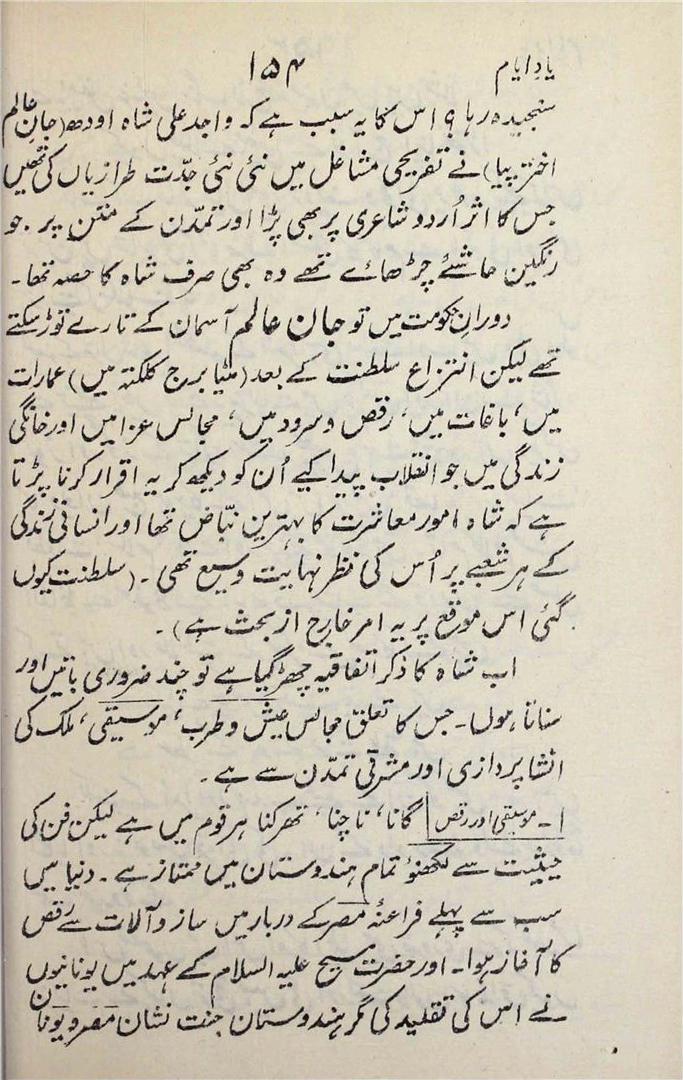 یادِ ایام ۱۵۴
سنجیدہ رہا؟ اس کا یہ سبب ہے کہ واجد علی شاہ اودھ (جانِ عالم
اختر پیا) نے تفریحی مشاغل میں نئی نئی جدّت طرازیاں کی تھیں
جس کا اثر اُردو شاعری پر بھی پڑا اور تمدّن کے متن پر۔ جو
رنگین حاشئے چڑھائے تھے وہ بھی صرف شاہ کا حصہ تھا۔
دورانِ حکومت میں تو جانِ عالم آسمان کے تارے توڑ سکتے
تھے لیکن انتزاعِ سلطنت کے بعد (مٹیا برج کلکتہ میں) عمارات
میں، باغات میں، رقص و سرود میں، مجالس عزا میں اور خانگی
زندگی میں جو انقلاب پیدا کیے اُن کو دیکھ کر یہ اقرار کرنا پڑتا
ہے کہ شاہ امورِ معاشرت کا بہترین نبّاض تھا اور انسانی زندگی
کے ہر شعبے پر اُس کی نظر نہایت وسیع تھی۔ (سلطنت کیوں
گئی اس موقع پر یہ امر خارج از بحث ہے)۔
اب شاہ کا ذکر اتفاقیہ چھڑ گیا ہے تو چند ضروری باتیں اور
سنانا ہوں گا۔ جس کا تعلق مجالس عیش و طرب، موسیقی، ملک کی
انشا پردازی اور مشرقی تمدّن سے ہے۔
۱۔ موسیقی اور رقص | گانا، ناچنا، تھرکنا ہر قوم میں ہے لیکن فن کی
حیثیت سے لکھنؤ تمام ہندوستان میں ممتاز ہے۔ دنیا میں
سب سے پہلے فراعنۂ مصر کے دربار میں ساز و آلات سے رقص
کا آغاز ہوا۔ اور حضرت مسیح علیہ السلام کے عہد میں یونانیوں
نے اس کی تقلید کی مگر ہندوستان جنت نشان مصر و یونان